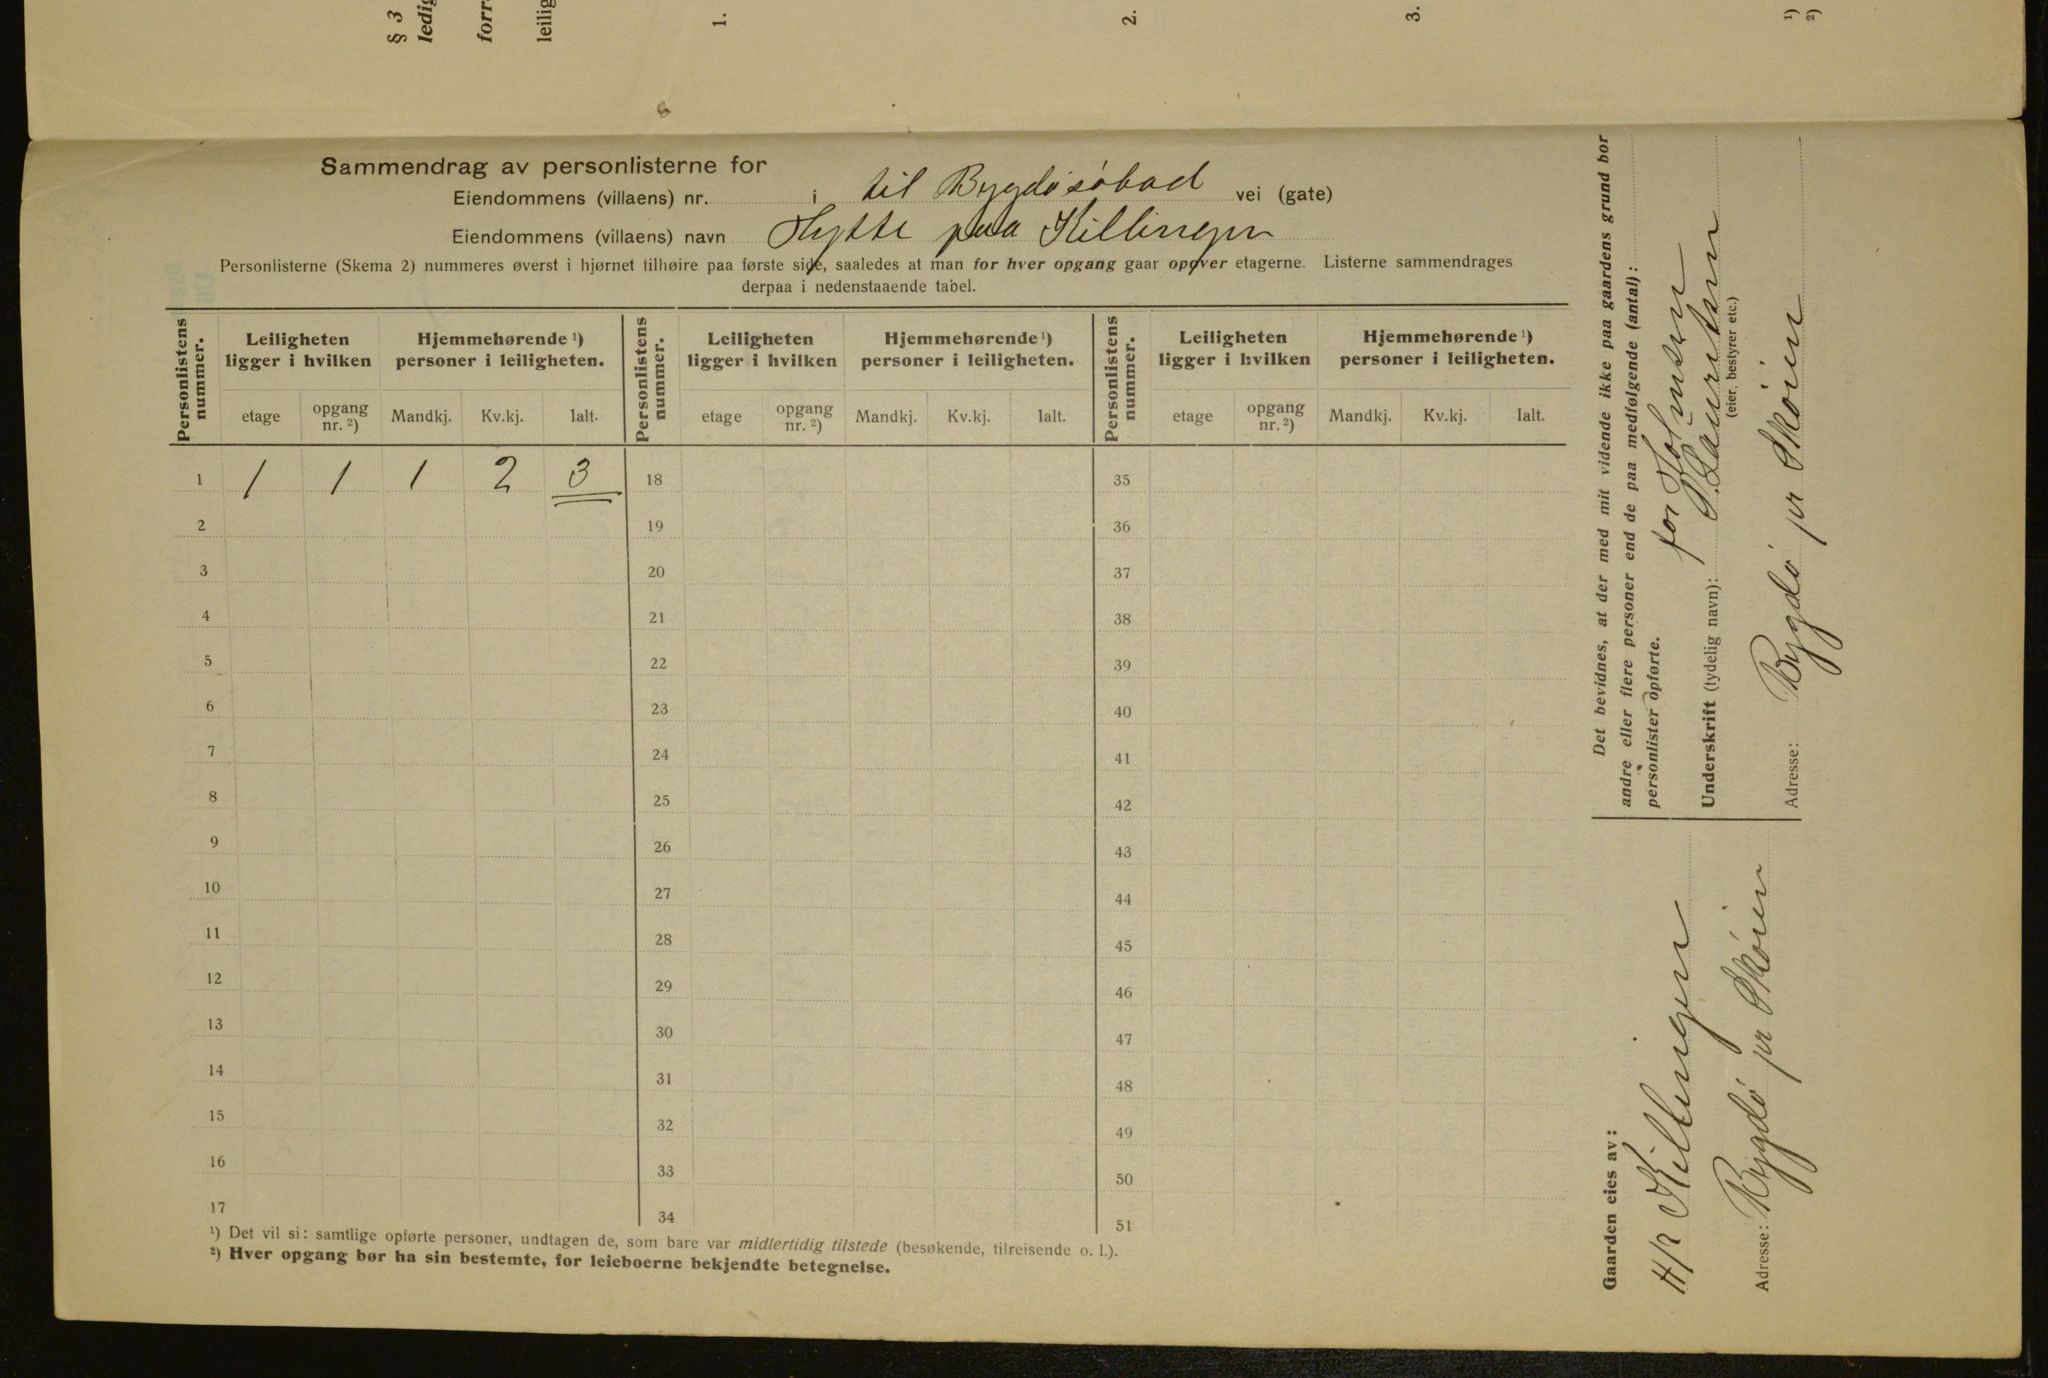 § 3
ledig
forr
leilig
1.
2.
3.
¹)
²)
Sammendrag av personlisterne for
Eiendommens (villaens) nr. i til Bygdøsøbad vei (gate)
Eiendommens (villaens) navn Hytte paa Killingen
Personlisterne (Skema 2) nummeres øverst i hjørnet tilhøire paa første side, saaledes at man for hver opgang gaar opover etagerne. Listerne sammendrages
derpaa i nedenstaaende tabel.
Personlistens nummer. Leiligheten ligger i hvilken Hjemmehørende ¹) personer i leiligheten. Personlistens nummer. Leiligheten ligger i hvilken Hjemmehørende ¹) personer i leiligheten. Personlistens nummer. Leiligheten ligger i hvilken Hjemmehørende ¹) personer i leiligheten.
etage opgang nr. ²) Mandkj. Kv.kj. Ialt. etage opgang nr. ²) Mandkj. Kv.kj. Ialt. etage opgang nr. ²) Mandkj. Kv.kj. Ialt.
1 1 1 1 2 3 18 35
2 19 36
3 20 37
4 21 38
5 22 39
6 23 40
7 24 41
8 25 42
9 26 43
10 27 44
11 28 45
12 29 46
13 30 47
14 31 48
15 32 49
16 33 50
17 34 51
¹) Det vil si: samtlige opførte personer, undtagen de, som bare var midlertidig tilstede (besøkende, tilreisende o. l.).
²) Hver opgang bør ha sin bestemte, for leieboerne bekjendte betegnelse.
Gaarden eies av:
Killingen
Adresse: Bygdø pr Skøien
Det bevidnes, at der med mit vidende ikke paa gaardens grund bor
andre eller flere personer end de paa medfølgende (antal):
personlister opførte. for
Underskrift (tydelig navn): Lauritsen
(eier, bestyrer etc.)
Adresse: Bygdø pr Skøien